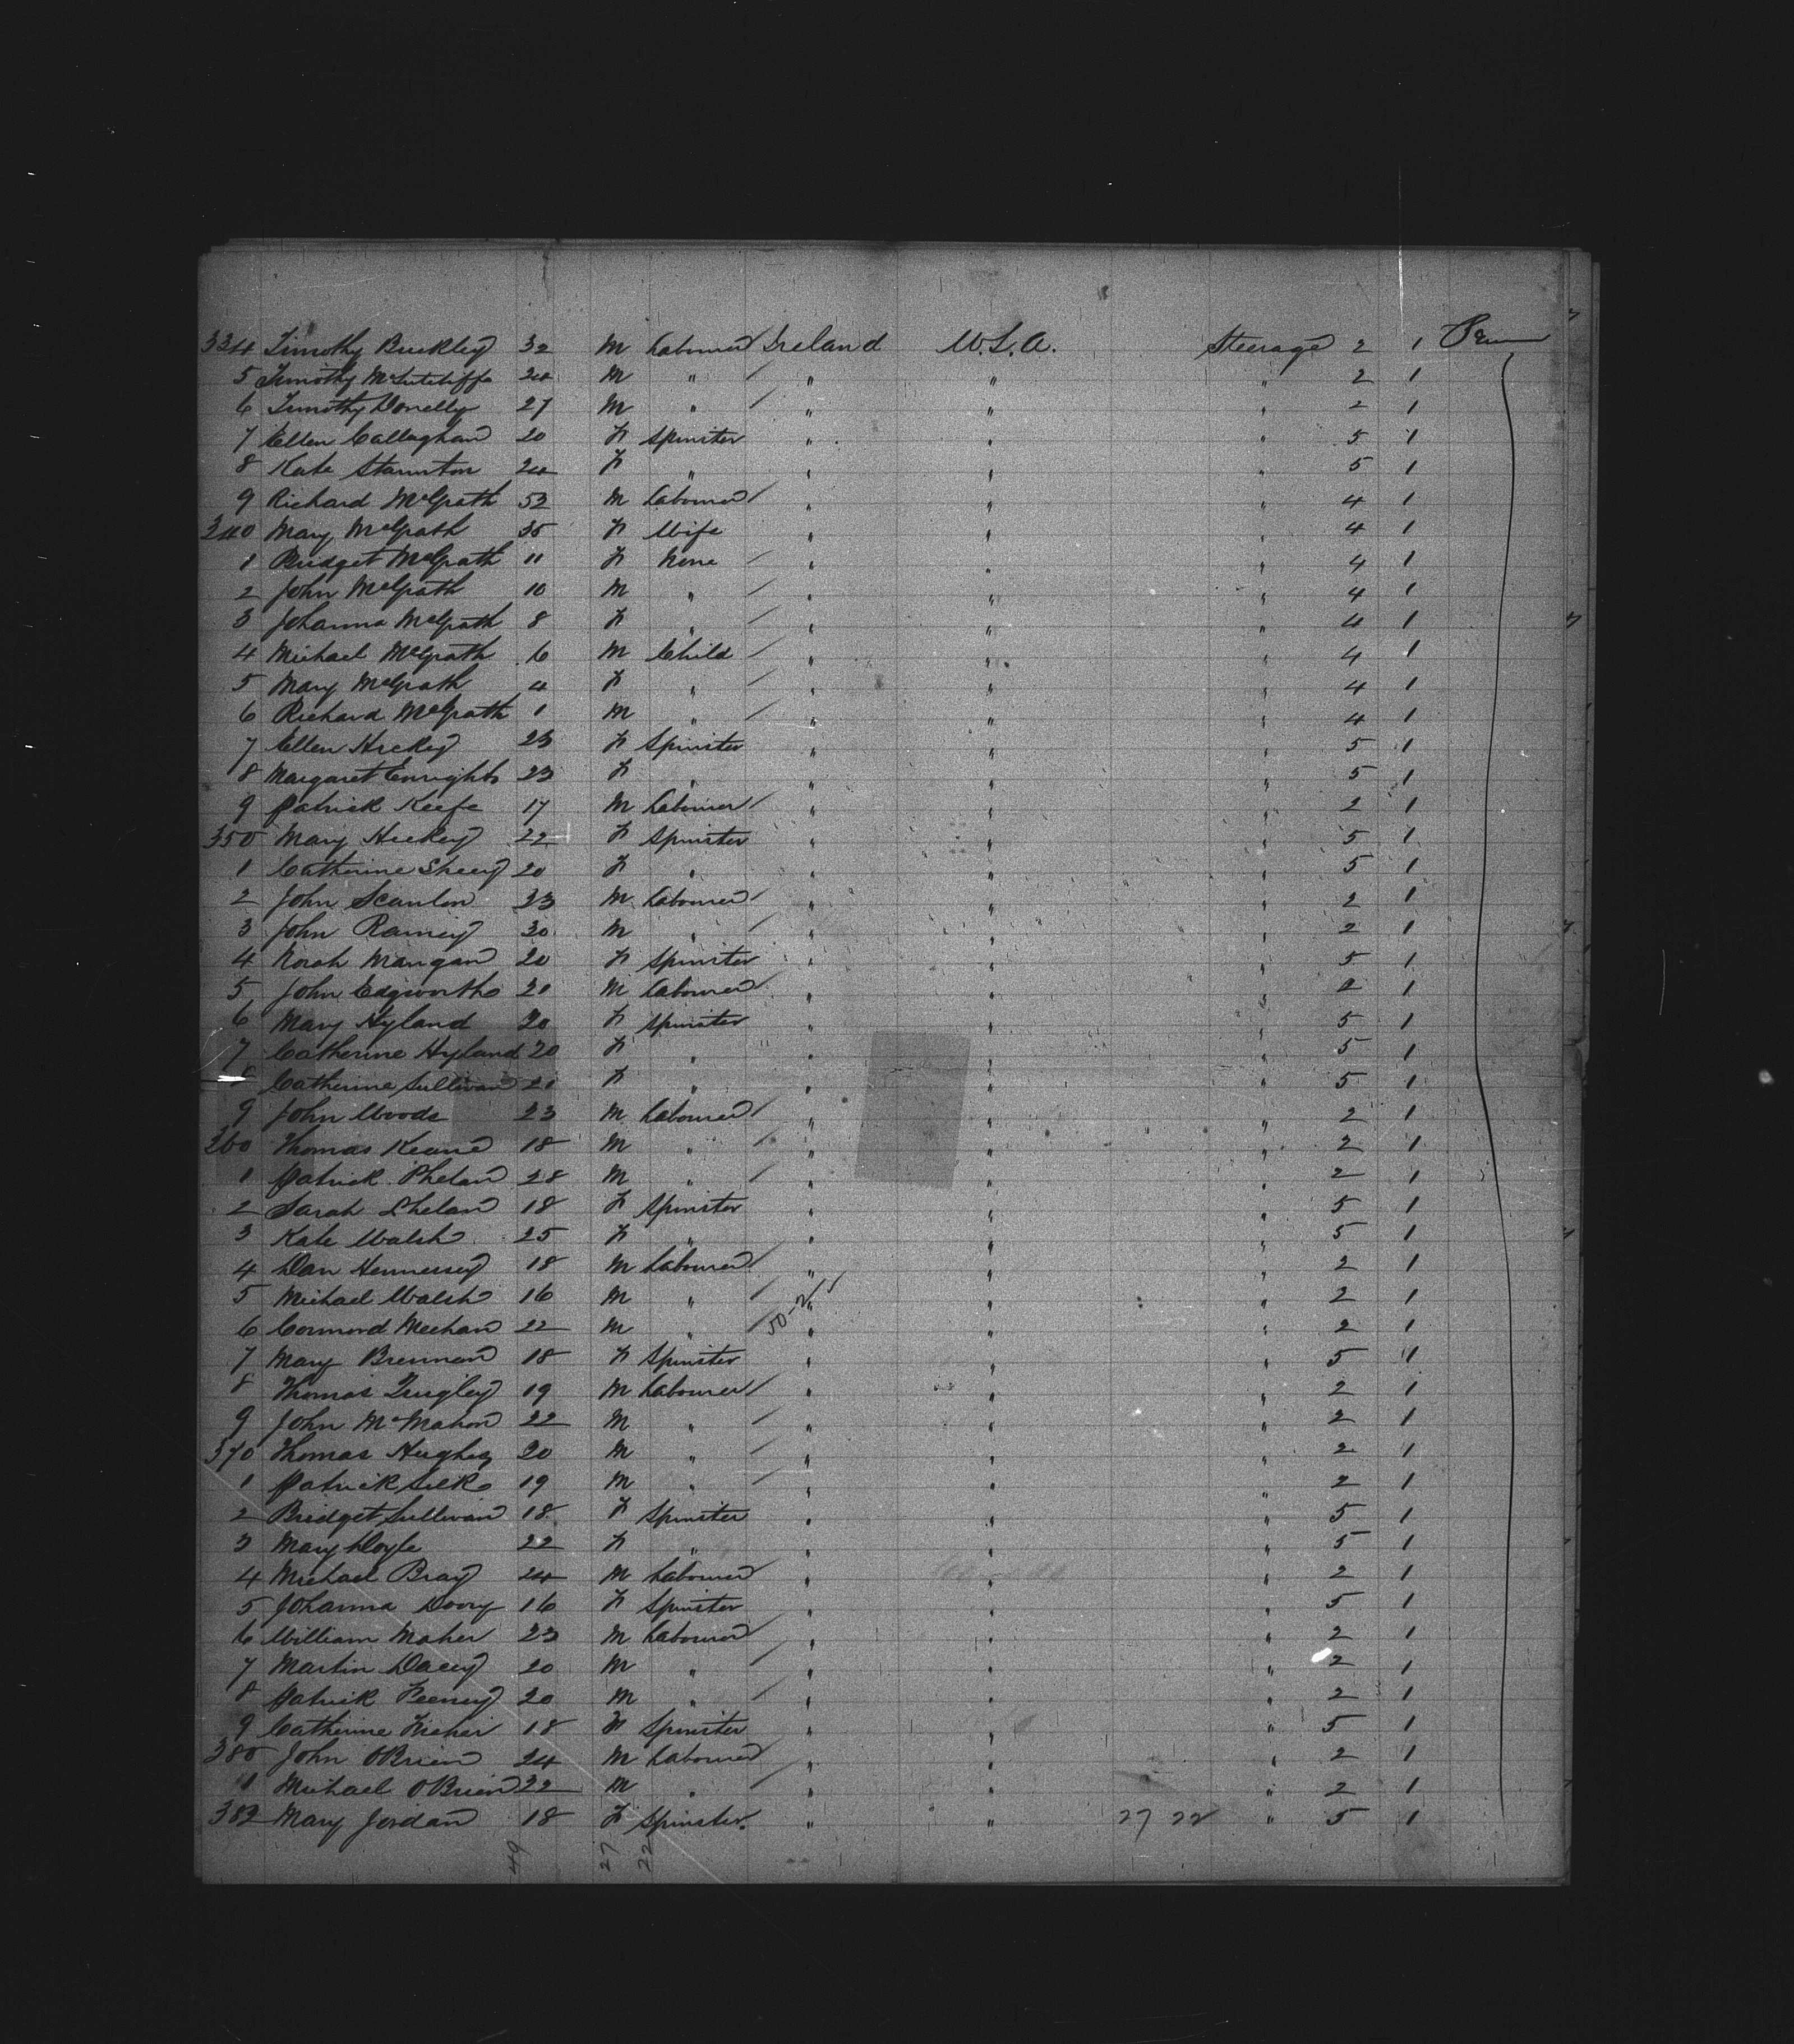 334 Timothy Buckley 32 M Labourer Ireland U.S.A. Steerage 2 1
5 Timothy McAutcliffe 24 M " / " " " 2 1
6 Timothy Donelly 27 M " / " " " 2 1
7 Ellen Callaghan 20 F Spinster " " " 5 1
8 Kate Staunton 24 F " " " " 5 1
9 Richard McGrath 52 M Labourer / " " " 4 1
340 Mary McGrath 35 F Wife " " " 4 1
1 Bridget McGrath 11 F None / " " " 4 1
2 John McGrath 10 M " / " " " 4 1
3 Johanna McGrath 8 F " / " " " 4 1
4 Michael McGrath 6 M Child / " " " 4 1
5 Mary McGrath 4 F " / " " " 4 1
6 Richard McGrath 1 M " / " " " 4 1
7 Ellen Hickey 23 F Spinster " " " 5 1
8 Margaret Enright 23 F " " " " 5 1
9 Patrick Keefe 17 M Labourer / " " " 2 1
350 Mary Hickey 22 F Spinster " " " 5 1
1 Catherine Sheey 20 F " " " " 5 1
2 John Scanlon 23 M Labourer / " " " 2 1
3 John Ramey 30 M " / " " " 2 1
4 Norah Mangan 20 F Spinster " " " 5 1
5 John Edgworth 21 M Labourer / " " " 2 1
6 Mary Hyland 20 F Spinster " " " 5 1
7 Catherine Hyland 20 F " " " " 5 1
8 Catherine Sullivan 21 F " " " " 5 1
9 John Woods 23 M Labourer / " " " 2 1
360 Thomas Keane 18 M " / " " " 2 1
1 Patrick Phelan 28 M " / " " " 2 1
2 Sarah Phelan 18 F Spinster " " " 5 1
3 Kate Walsh 25 F " " " " 5 1
4 Dan Hennessey 18 M Labourer / " " " 2 1
5 Michael Walsh 16 M " / " " " 2 1
6 Cormond Meehan 22 M " / 50-2 " " " 2 1
7 Mary Brennan 18 F Spinster " " " 5 1
8 Thomas Quigley 19 M Labourer / " " " 2 1
9 John McMahon 22 M " / " " " 2 1
370 Thomas Hughes 20 M " / " " " 2 1
1 Patrick Silk 19 M " / " " " 2 1
2 Bridget Sullivan 18 F Spinster " " " 5 1
3 Mary Doyle 22 F " " " " 5 1
4 Michael Bray 24 M Labourer / " " " 2 1
5 Johanna Doory 16 F Spinster " " " 5 1
6 William Maher 23 M Labourer / " " " 2 1
7 Martin Dacey 20 M " / " " " 2 1
8 Patrick Feeney 20 M " / " " " 2 1
9 Catherine 18 F Spinster " " " 5 1
380 John OBrien 24 M Labourer / " " " 2 1
1 Michael OBrien 22 M " / " " " 2 1
382 Mary Jordan 18 F Spinster. " " 27 22 " 5 1
49 27 22